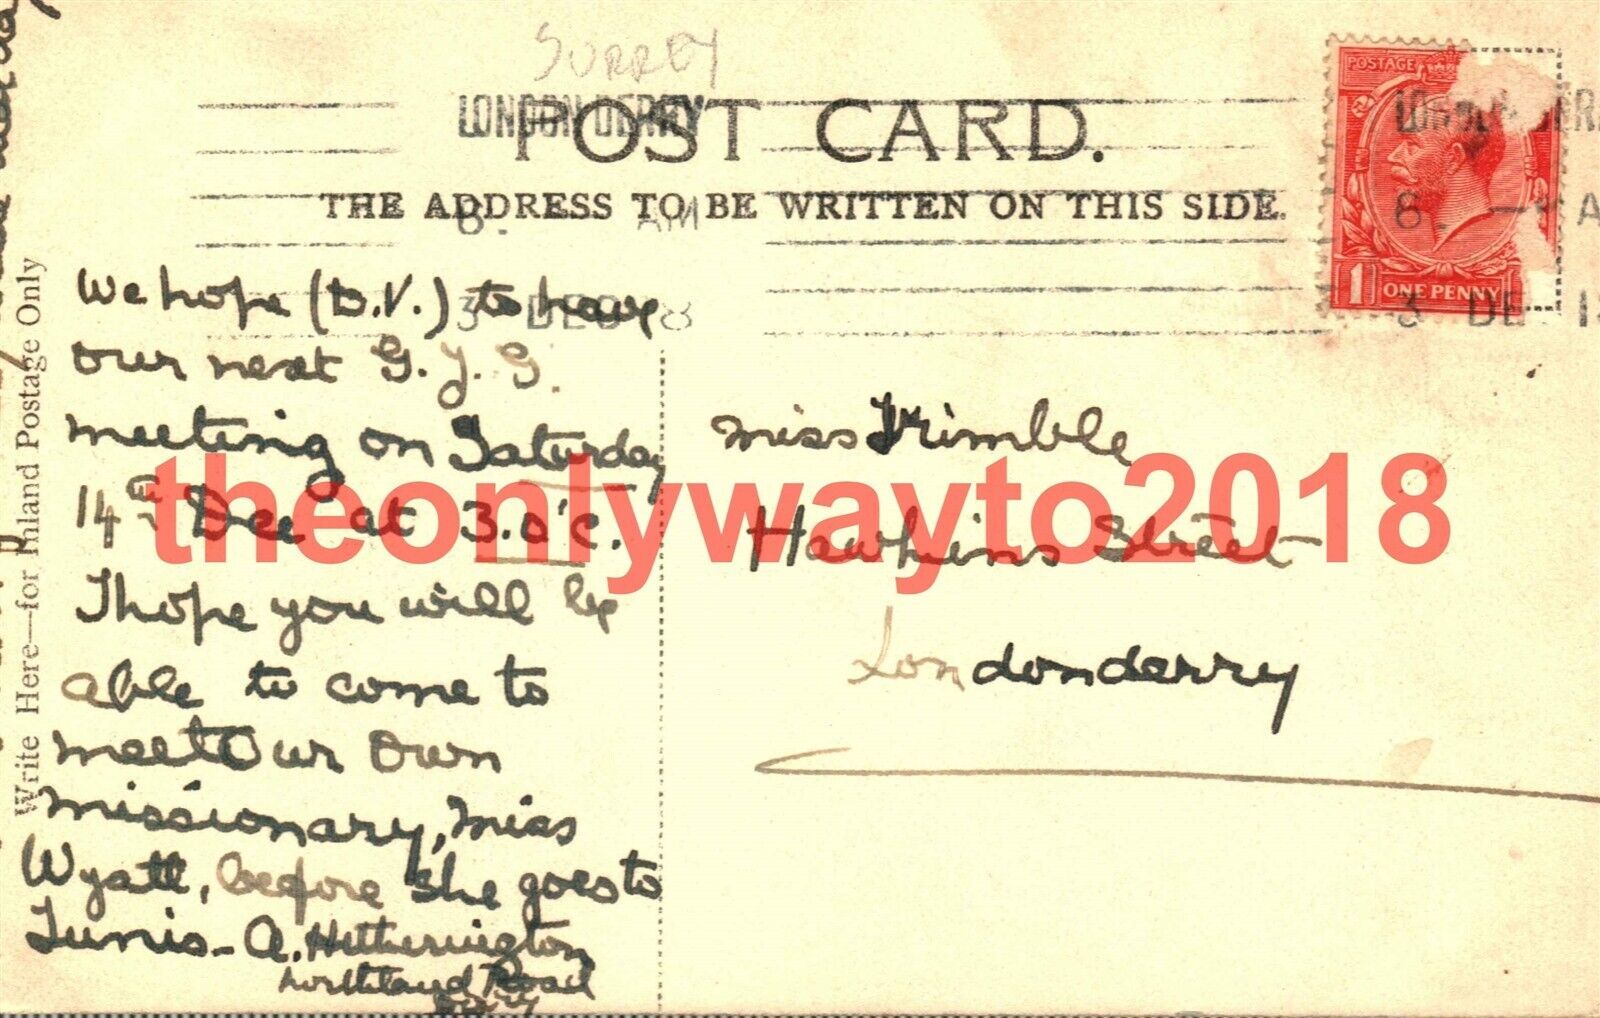 SURREY
LONDONDERRY
POST CARD.
THE ADDRESS TO BE WRITTEN ON THIS SIDE.
8. AM
3 DEC 18
POSTAGE
1 ONE PENNY
8. — A
3 DE 1
Write Here—for Inland Postage Only
We hope (D.V.) to have
our next G.Y.G.
meeting on Saturday
14th Dec at 3.0'c.
I hope you will be
able to come to
meet our own
missionary, Miss
Wyatt, before she goes to
Tunis - A. Hetherington
Northland Road
Derry
Miss Trimble
Hawkins Street
Londonderry
theonlywayto2018